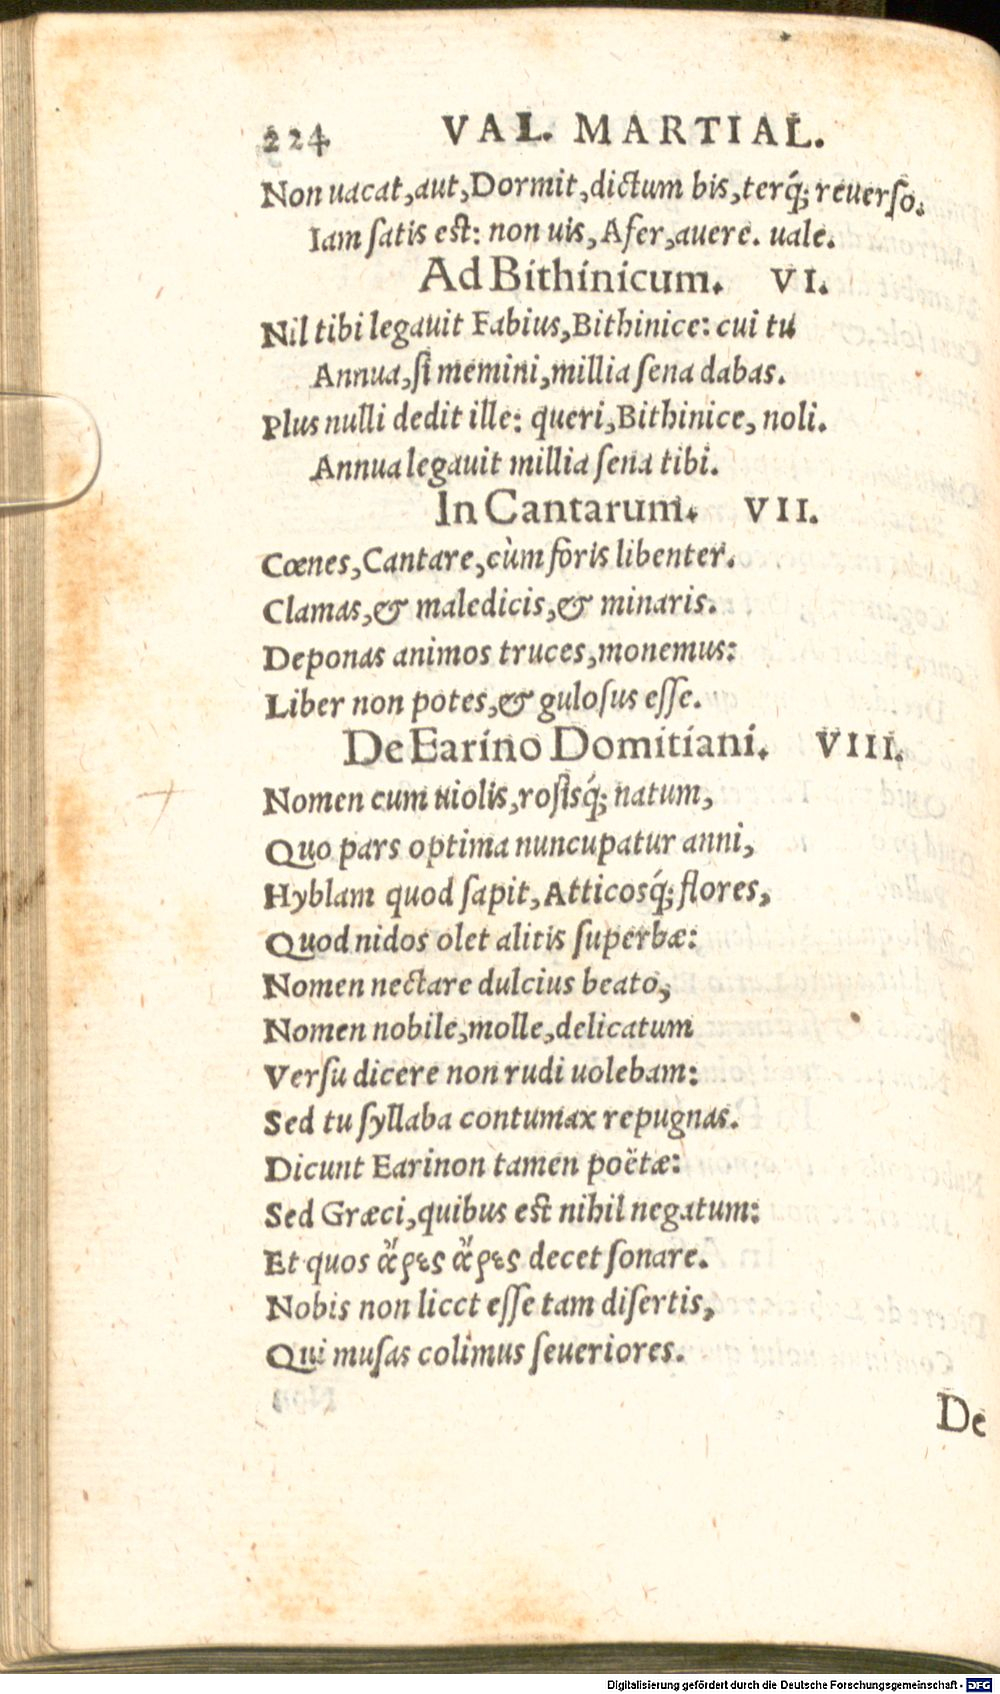 224 VAL. MARTIAL.
Non uacat, aut, Dormit, dictum bis, terq́; reuerso.
Iam satis est: non uis, Afer, auere. uale.
Ad Bithinicum. VI.
Nil tibi legauit Fabius, Bithinice: cui tu
Annua, si memini, millia sena dabas.
Plus nulli dedit ille: queri, Bithinice, noli.
Annua legauit millia sena tibi.
In Cantarum. VII.
Cœnes, Cantare, cùm foris libenter.
Clamas, & maledicis, & minaris.
Deponas animos truces, monemus:
Liber non potes, & gulosus esse.
De Earino Domitiani. VIII.
Nomen cum uiolis, rosisq́; natum,
Quo pars optima nuncupatur anni,
Hyblam quod sapit, Atticosq́; flores,
Quod nidos olet alitis superbæ:
Nomen nectare dulcius beato,
Nomen nobile, molle, delicatum
Versu dicere non rudi uolebam:
Sed tu syllaba contumax repugnas.
Dicunt Earinon tamen poëtæ:
Sed Græci, quibus est nihil negatum:
Et quos ἄρες ἄρες decet sonare.
Nobis non licct esse tam disertis,
Qui musas colimus seueriores.
De
Digitalisierung gefördert durch die Deutsche Forschungsgemeinschaft - DFG